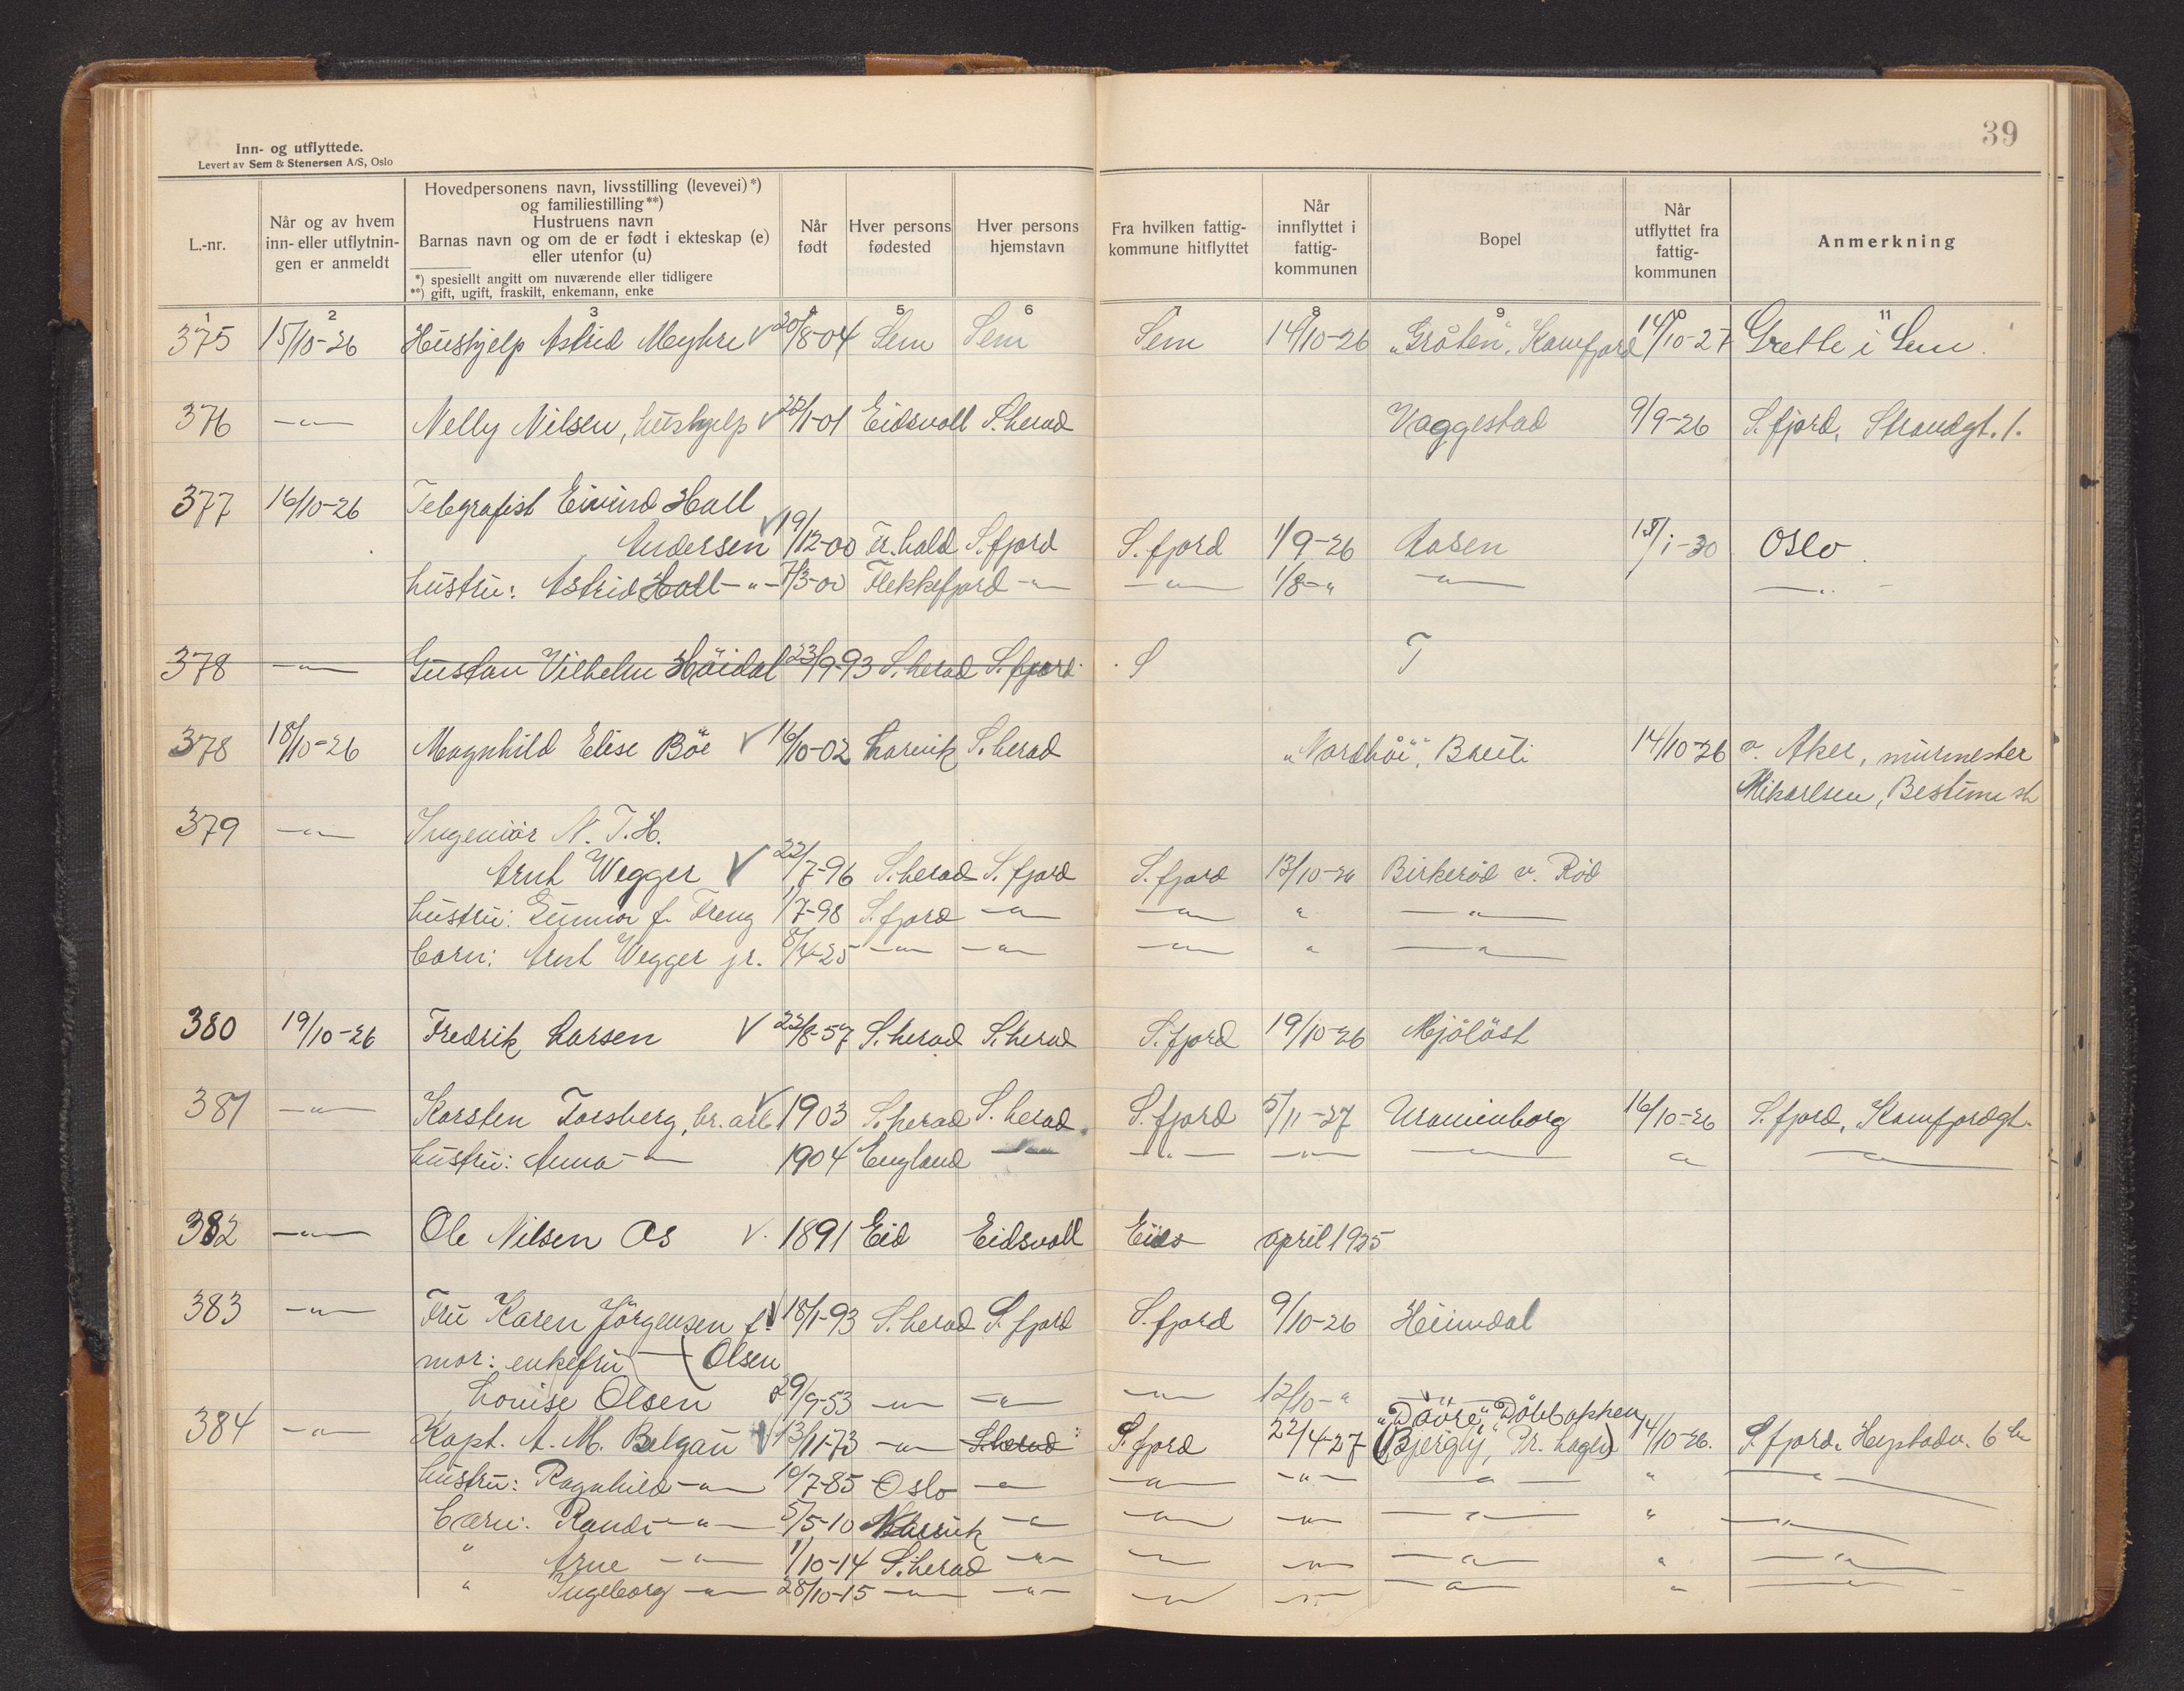 39
Inn- og utflyttede.
Levert av Sem & Stenersen A/S, Oslo
L.-nr.
Når og av hvem inn- eller utflytnin- gen er anmeldt
Hovedpersonens navn, livsstilling (levevei)*)
og familiestilling**)
Hustruens navn
Barnas navn og om de er født i ekteskap (e)
eller utenfor (u)
*) spesiellt angitt om nuværende eller tidligere
**) gift, ugift, fraskilt, enkemann, enke
Når født
Hver persons fødested
Hver persons hjemstavn
Fra hvilken fattig- kommune hitflyttet
Når innflyttet i fattig- kommunen
Bopel
Når utflyttet fra fattig- kommunen
Anmerkning
1 2 3 4 5 6 7 8 9 10 11
375 15/10-26 Hushjelp Astrid Myhre V 20/8-04 Sem Sem Sem 14/10-26 „Gråtên“, Kamfjord 14/10-27 Grette i Sem.
376 —„— Nelly Nilsen, hushjelp V 22/1-01 Eidsvoll S.herad Vaggestad 9/9-26 S.fjord, Strandgt. 1.
377 16/10-26 Telegrafist Eivind Hall
Andersen V 19/12-00 Fr.hald S.fjord S.fjord 1/9-26 Aasen 15/1-30 Oslo.
hustru: Astrid Hall —„— 7/3-00 Flekkefjord —„— —„— 1/8-„ —„— —„—
378 —„— Gustav Vilhelm Höidal 23/9-93 S.herad S.fjord S T
378 18/10-26 Magnhild Elise Böe V 16/10-02 Larvik S.herad „Nordhöi“, Breili 14/10-26 v. Aker, murmester
Mikaelsen, Bestum st
379 —„— Ingeniör N.T.H.
Arnt Wegger V 22/7-96 S.herad S.fjord S.fjord 13/10-26 Birkeröd v. Röd
hustru: Gunvor f. Freng 1/7-98 S.fjord —„— —„— „ —„—
barn: Arnt Wegger jr. 8/4-25 —„— —„— —„— „ —„—
380 19/10-26 Fredrik Larsen V 22/8-57 S.herad S.herad S.fjord 19/10-26 Mjölöst
381 —„— Karsten Forsberg, br.arb. V 1903 S.herad S.herad S.fjord 5/11-27 Uranienborg 16/10-26 S.fjord, Kamfjordgt.
hustru: Anna —„— 1904 England —„— —„— —„— „ —„—
382 —„— Ole Nilsen Os V. 1891 Eid Eidsvoll Eids april 1925
383 —„— Fru Karen Jörgensen f. V 18/1-93 S.herad S.fjord S.fjord 9/10-26 Heimdal
mor: enkefru — (Olsen
Louise Olsen 29/9-53 —„— —„— —„— 12/10-„ —„—
384 —„— Kapt. A. M. Belgau V 13/11-73 —„— S.herad S.fjord 22/4-27 „Dovre“, Döbbakken (Bjergly, Nr. hagls) 14/10-26. S.fjord, Hystadv. 6 b
hustru: Ragnhild —„— 10/7-85 Oslo —„— —„— —„— —„— „ —„—
barn: Randi —„— 5/5-10 Narvik —„— —„— —„— —„— „ —„—
„ Arne —„— 1/10-14 S.herad —„— —„— —„— —„— „ —„—
„ Ingeborg —„— 28/10-15 —„— —„— —„— —„— —„— „ —„—